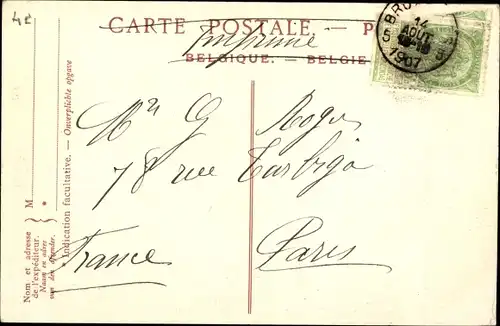 4E
CARTE POSTALE. — P
Imprimé
BELGIQUE. — BELGIE
BRU
14
AOUT
5 5
1907
Mr G Roger
78 rue Turbigo
France Paris
* Indication facultative. — Onverplichte opgave
M *
Nom et adresse
de l'expéditeur.
Naam en adres
van den afzender.